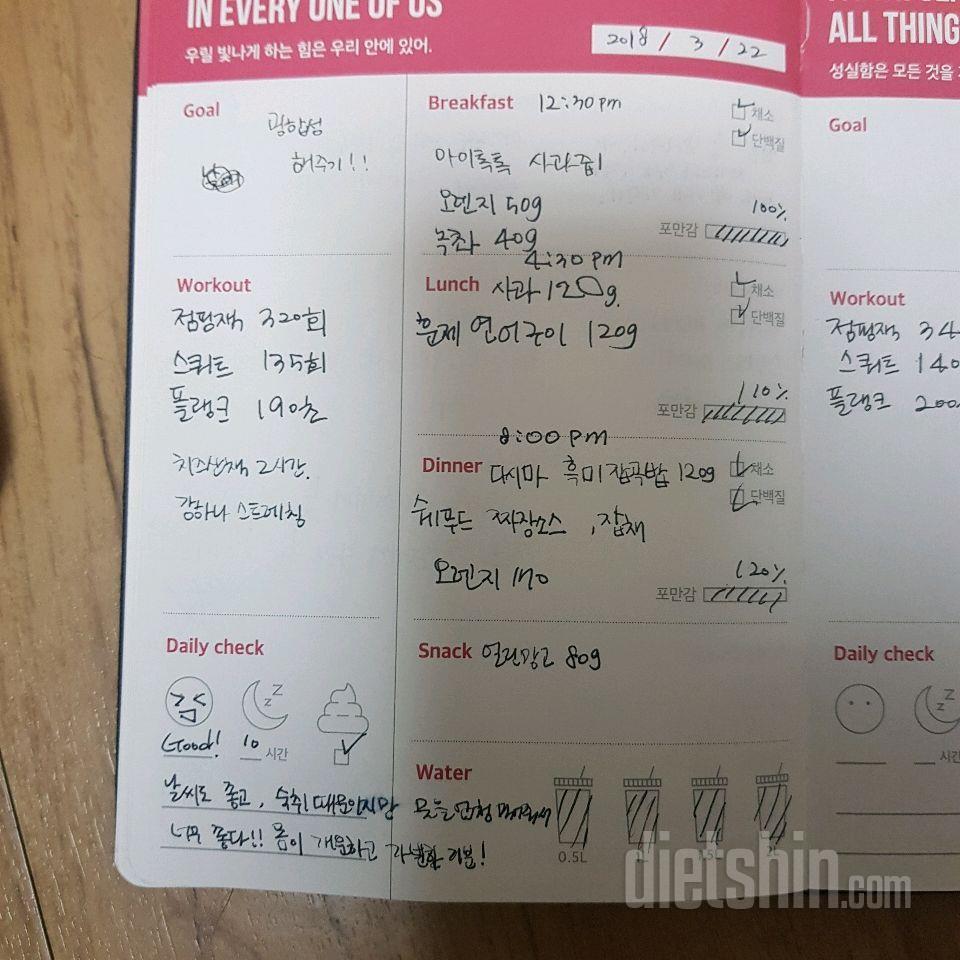 IN EVERY ONE OF US
우릴 빛나게 하는 힘은 우리 안에 있어.
2018 / 3 / 22
Goal
광합성
해주기!!
Breakfast 12:30 pm
채소
단백질
아이톡톡 사과즙
오렌지 50g
녹차 40g
100%
포만감
4:30 pm
Lunch 사과 120g.
채소
단백질
훈제 연어구이 120g
110%
포만감
Workout
점핑잭 320회
스쿼트 135회
플랭크 190초
2시간.
강하나 스트레칭
8:00 pm
Dinner 다시마 흑미 잡곡밥 120g
채소
단백질
쉐푸드 짜장소스, 잡채
오렌지 170
120%
포만감
Snack 80g
Daily check
Good!
10 시간
Water
0.5L
날씨도 좋고, 숙취 때문인지
너무 좋다!! 몸이 개운하고 기분!
ALL THING
성실함은 모든 것을
Goal
Workout
점핑잭 34
스쿼트 140
플랭크 200
Daily check
시간
dietshin.com